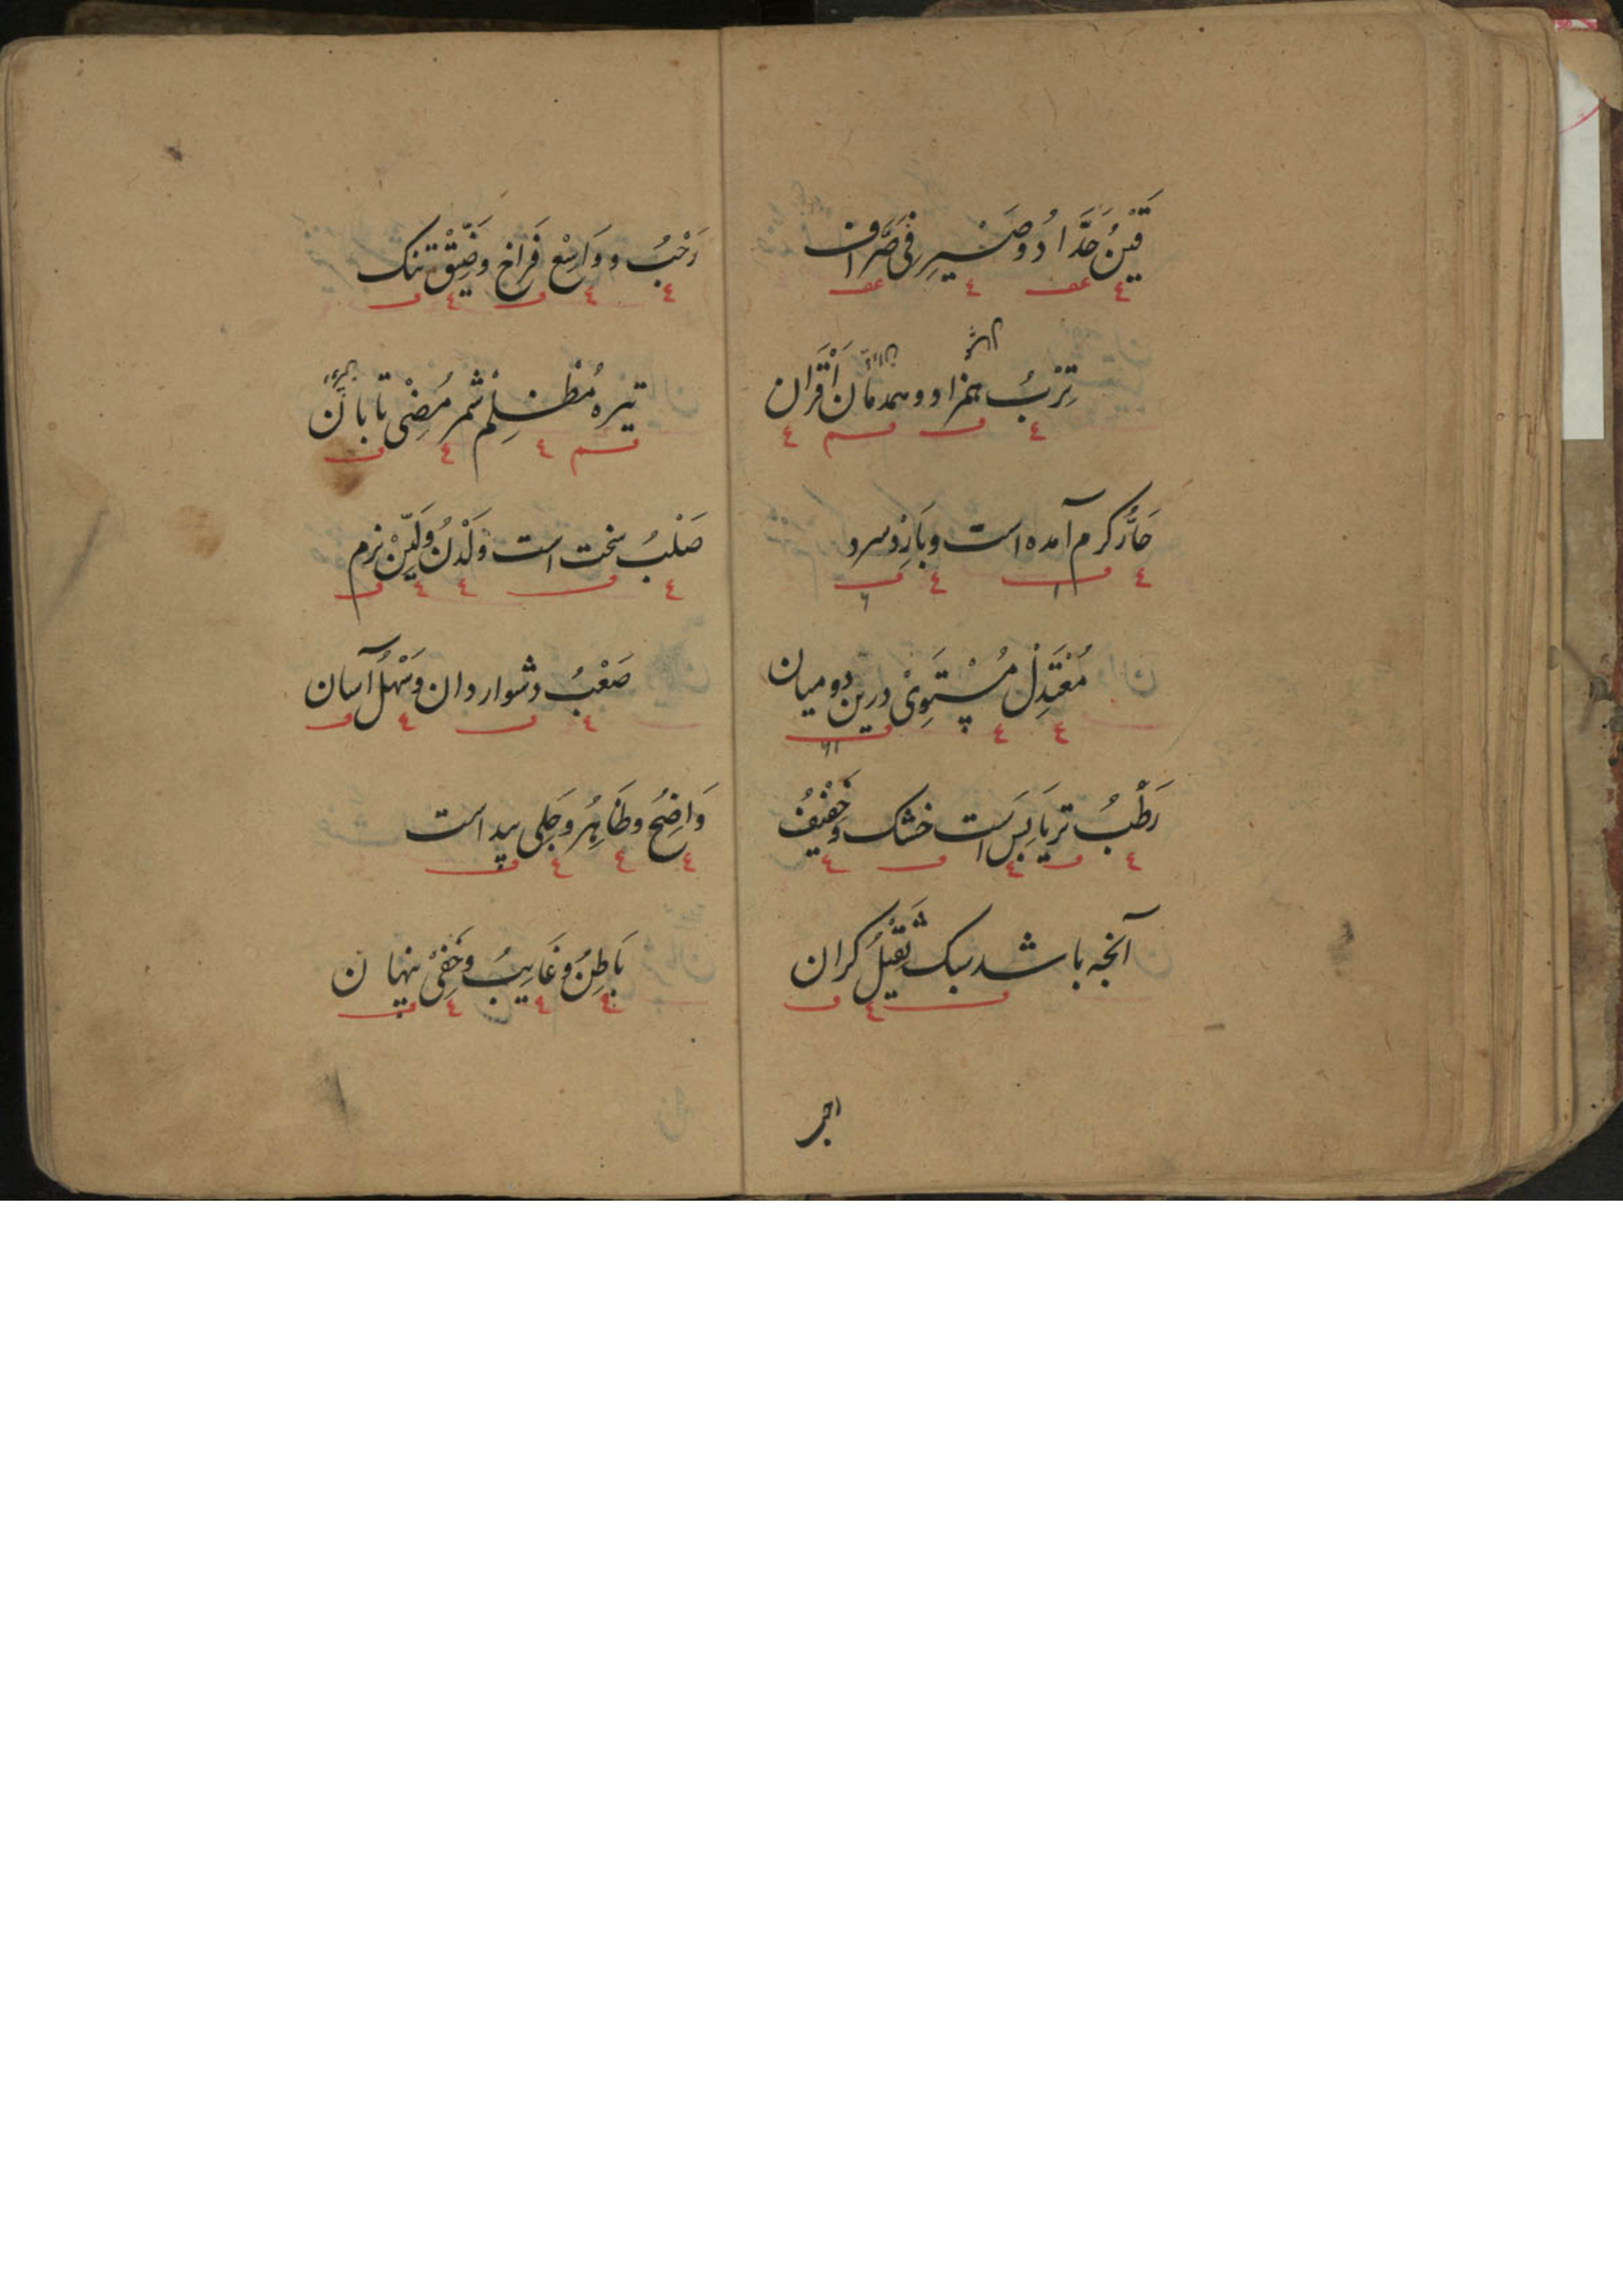 قَیْنُ حَدَّادُ وصَیْرِفِی صَرَّاف
تِرْبُ همزاد و همدمان اَقْرَان
حَارُّ کرم آمده است و بَارِدْ سرد
مُعْتَدِلْ مُسْتَوِیْ درین دو میان
رَطْبُ تر یَابِس است خشک وخَفِیْفُ
آنچه باشد سبک ثَقِیْلُ کران
رَحْبُ و وَاسِعْ فَرَاخ وَضَیِّقْ تنک
تیره مُظْلِمْ شمر مُضِیْ تابان
صَلْبُ سخت است وَلَدْنُ وَلَیِّنْ نرم
صَعْبُ دشوار دان وَسَهْلُ آسان
وَاضِحُ وظَاهِرُ وجَلِی پیداست
بَاطِنُ و غَایِبُ وخَفِیْ پنهان